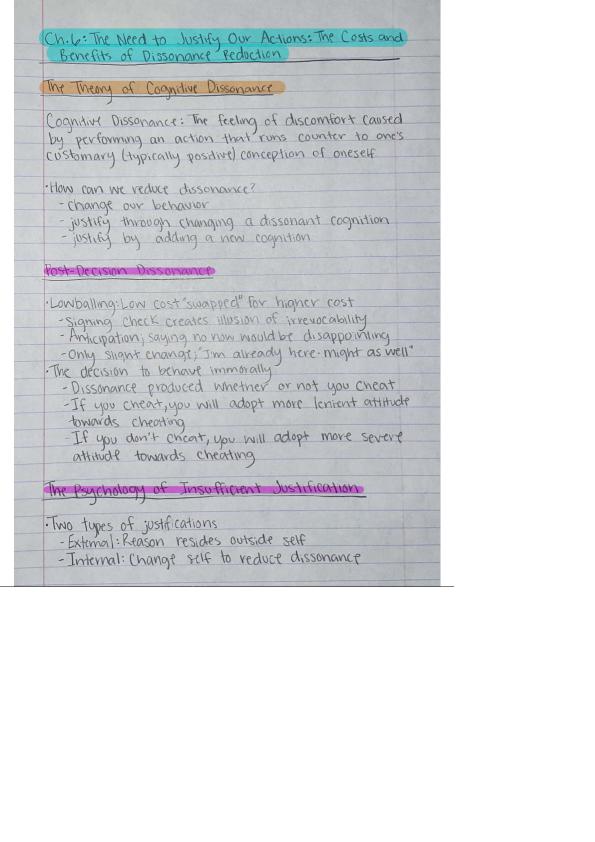 Ch.6: The Need to Justify Our Actions: The Costs and
Benefits of Dissonance Reduction
The Theory of Cognitive Dissonance
Cognitive Dissonance: The feeling of discomfort caused
by performing an action that runs counter to one's
customary (typically positive) conception of oneself
·How can we reduce dissonance?
-change our behavior
-justify through changing a dissonant cognition
-justify by adding a new cognition
Post-Decision Dissonance
·Lowballing: Low cost "swapped" for higher cost
-Signing check creates illusion of irrevocability
-Anticipation; saying no now would be disappointing
-Only slight change; "I'm already here-might as well"
·The decision to behave immorally
-Dissonance produced whether or not you cheat
-If you cheat, you will adopt more lenient attitude
towards cheating
-If you don't cheat, you will adopt more severe
attitude towards cheating
The Psychology of Insufficient Justification
·Two types of justifications
-External: Reason resides outside self
-Internal: Change self to reduce dissonance